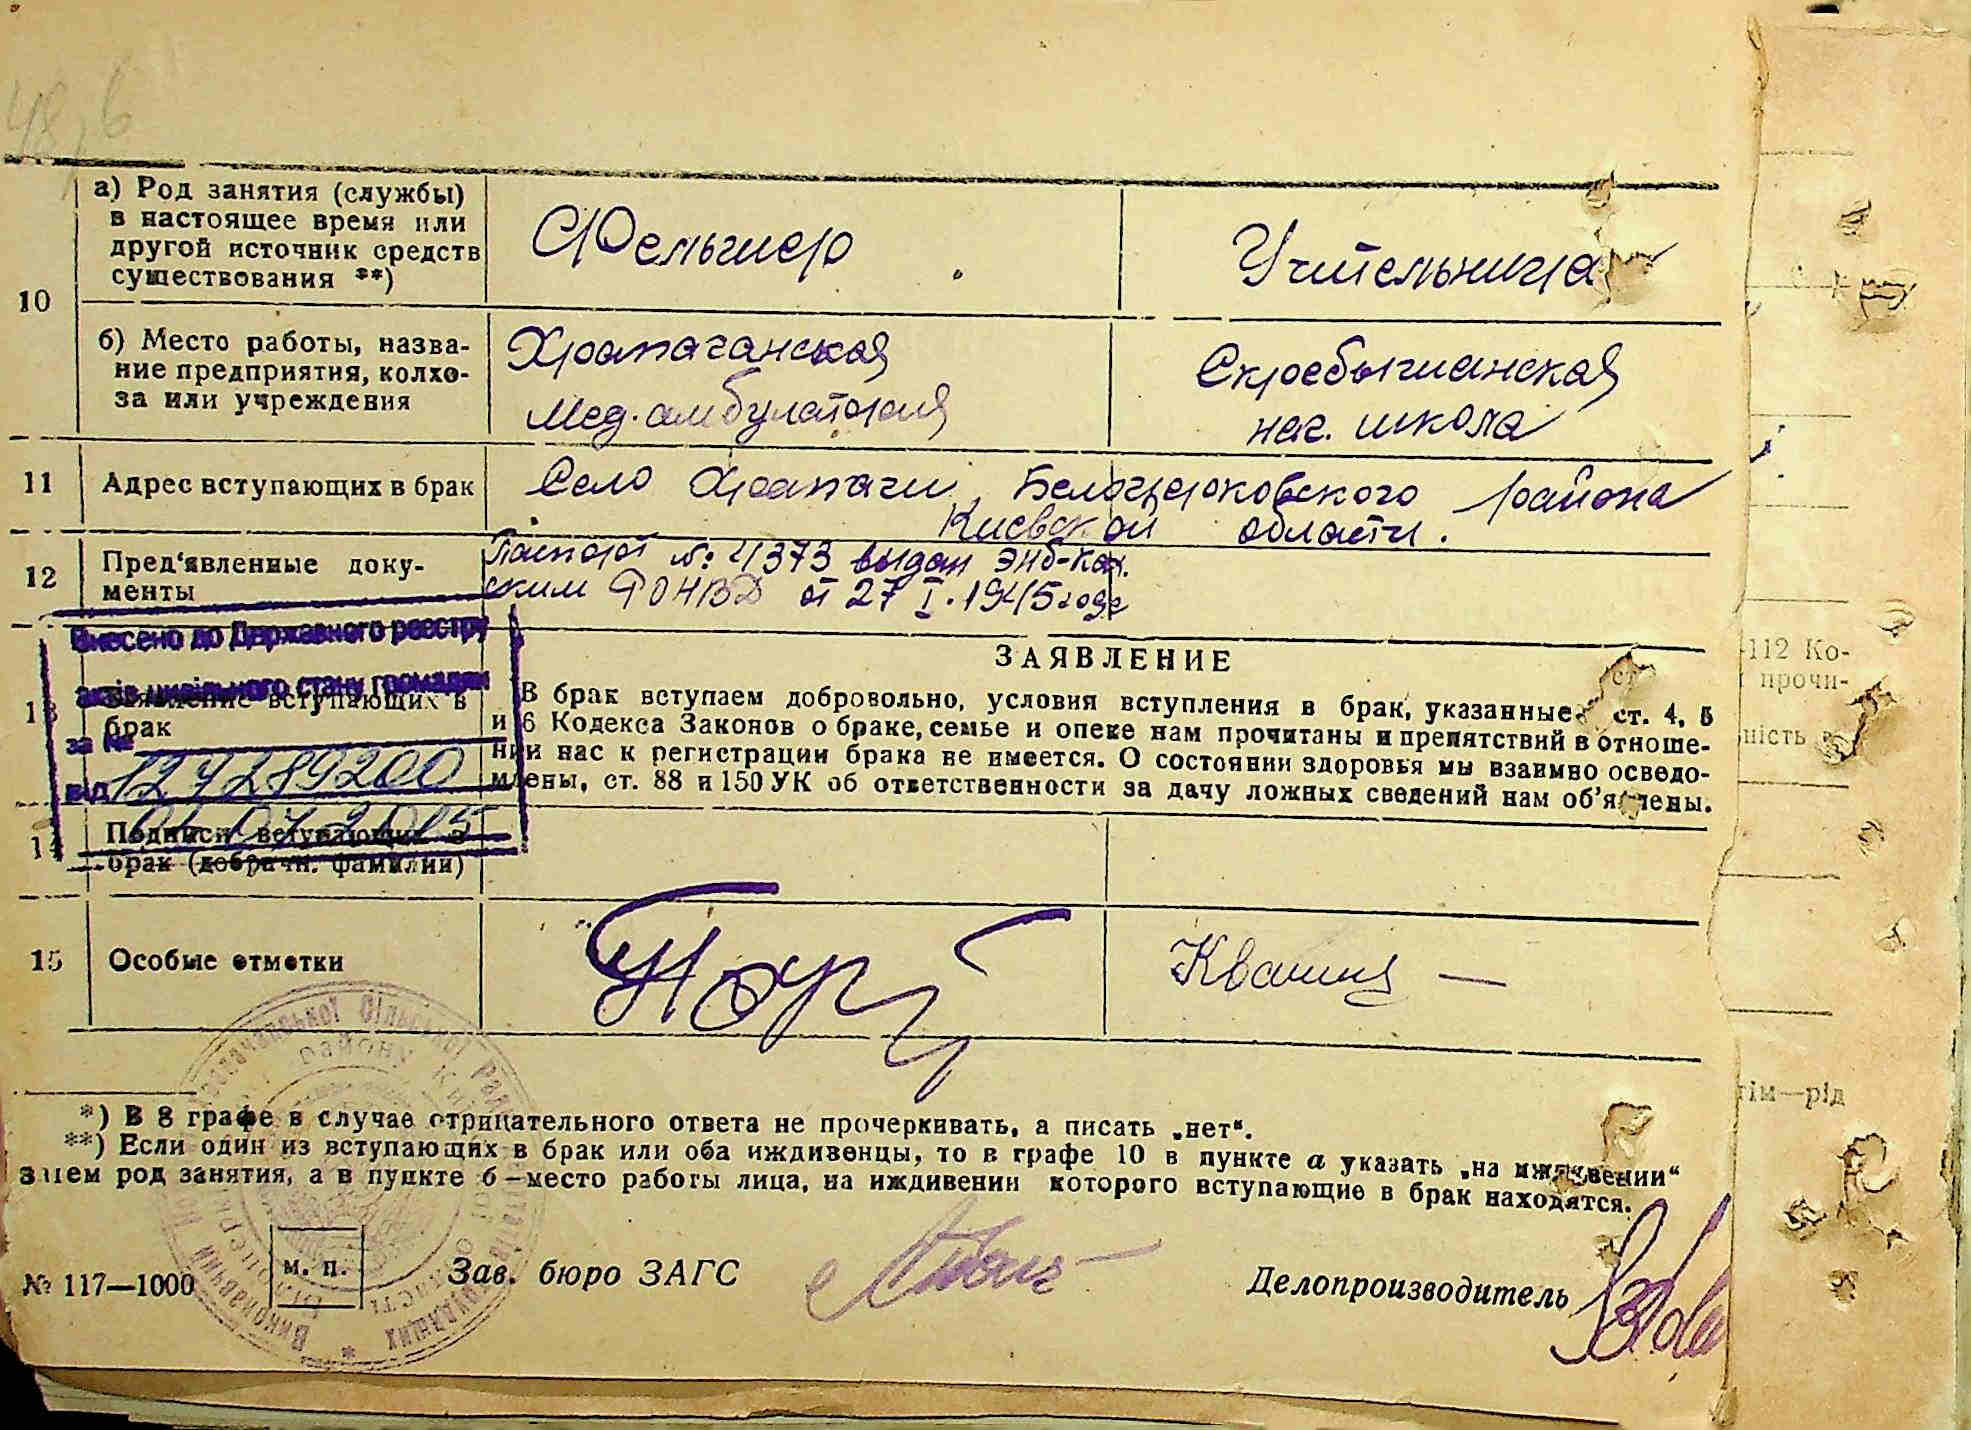 48, 6
10
а) Род занятия (службы)
в настоящее время или
другой источник средств
существования **)
Фельшер
Учительница
б) Место работы, назва-
ние предприятия, колхо-
за или учреждения
Храпачанская
мед. амбулатория
Скребышанская
нач. школа
11
Адрес вступающих в брак
Село Храпачи, Белоцерковского района
Киевской области.
12
Пред‘явленные доку-
менты
Паспорт №: 4373 выдан
ским РОНВД от 27 I. 1945 года
Внесено до Державного реєстру
актів цивільного стану громадян
за №
127289200
від
13
Заявление вступающих в
брак
ЗАЯВЛЕНИЕ
В брак вступаем добровольно, условия вступления в брак, указанные ст. 4, 5
и 6 Кодекса Законов о браке, семье и опеке нам прочитаны и препятствий в отноше-
нии нас к регистрации брака не имеется. О состоянии здоровья мы взаимно осведо-
млены, ст. 88 и 150 УК об ответственности за дачу ложных сведений нам об'явлены.
14
Подписи вступающих в
брак (добрачн. фамилии)
15
Особые отметки
Квашня
*) В 8 графе в случае отрицательного ответа не прочеркивать, а писать „нет“.
**) Если один из вступающих в брак или оба иждивенцы, то в графе 10 в пункте а указать „на иждивении“
затем род занятия, а в пункте б—место работы лица, на иждивении которого вступающие в брак находятся.
№ 117—1000
м. п.
Зав. бюро ЗАГС
Делопроизводитель
112 Ко-
прочи-
ність
тім—рід